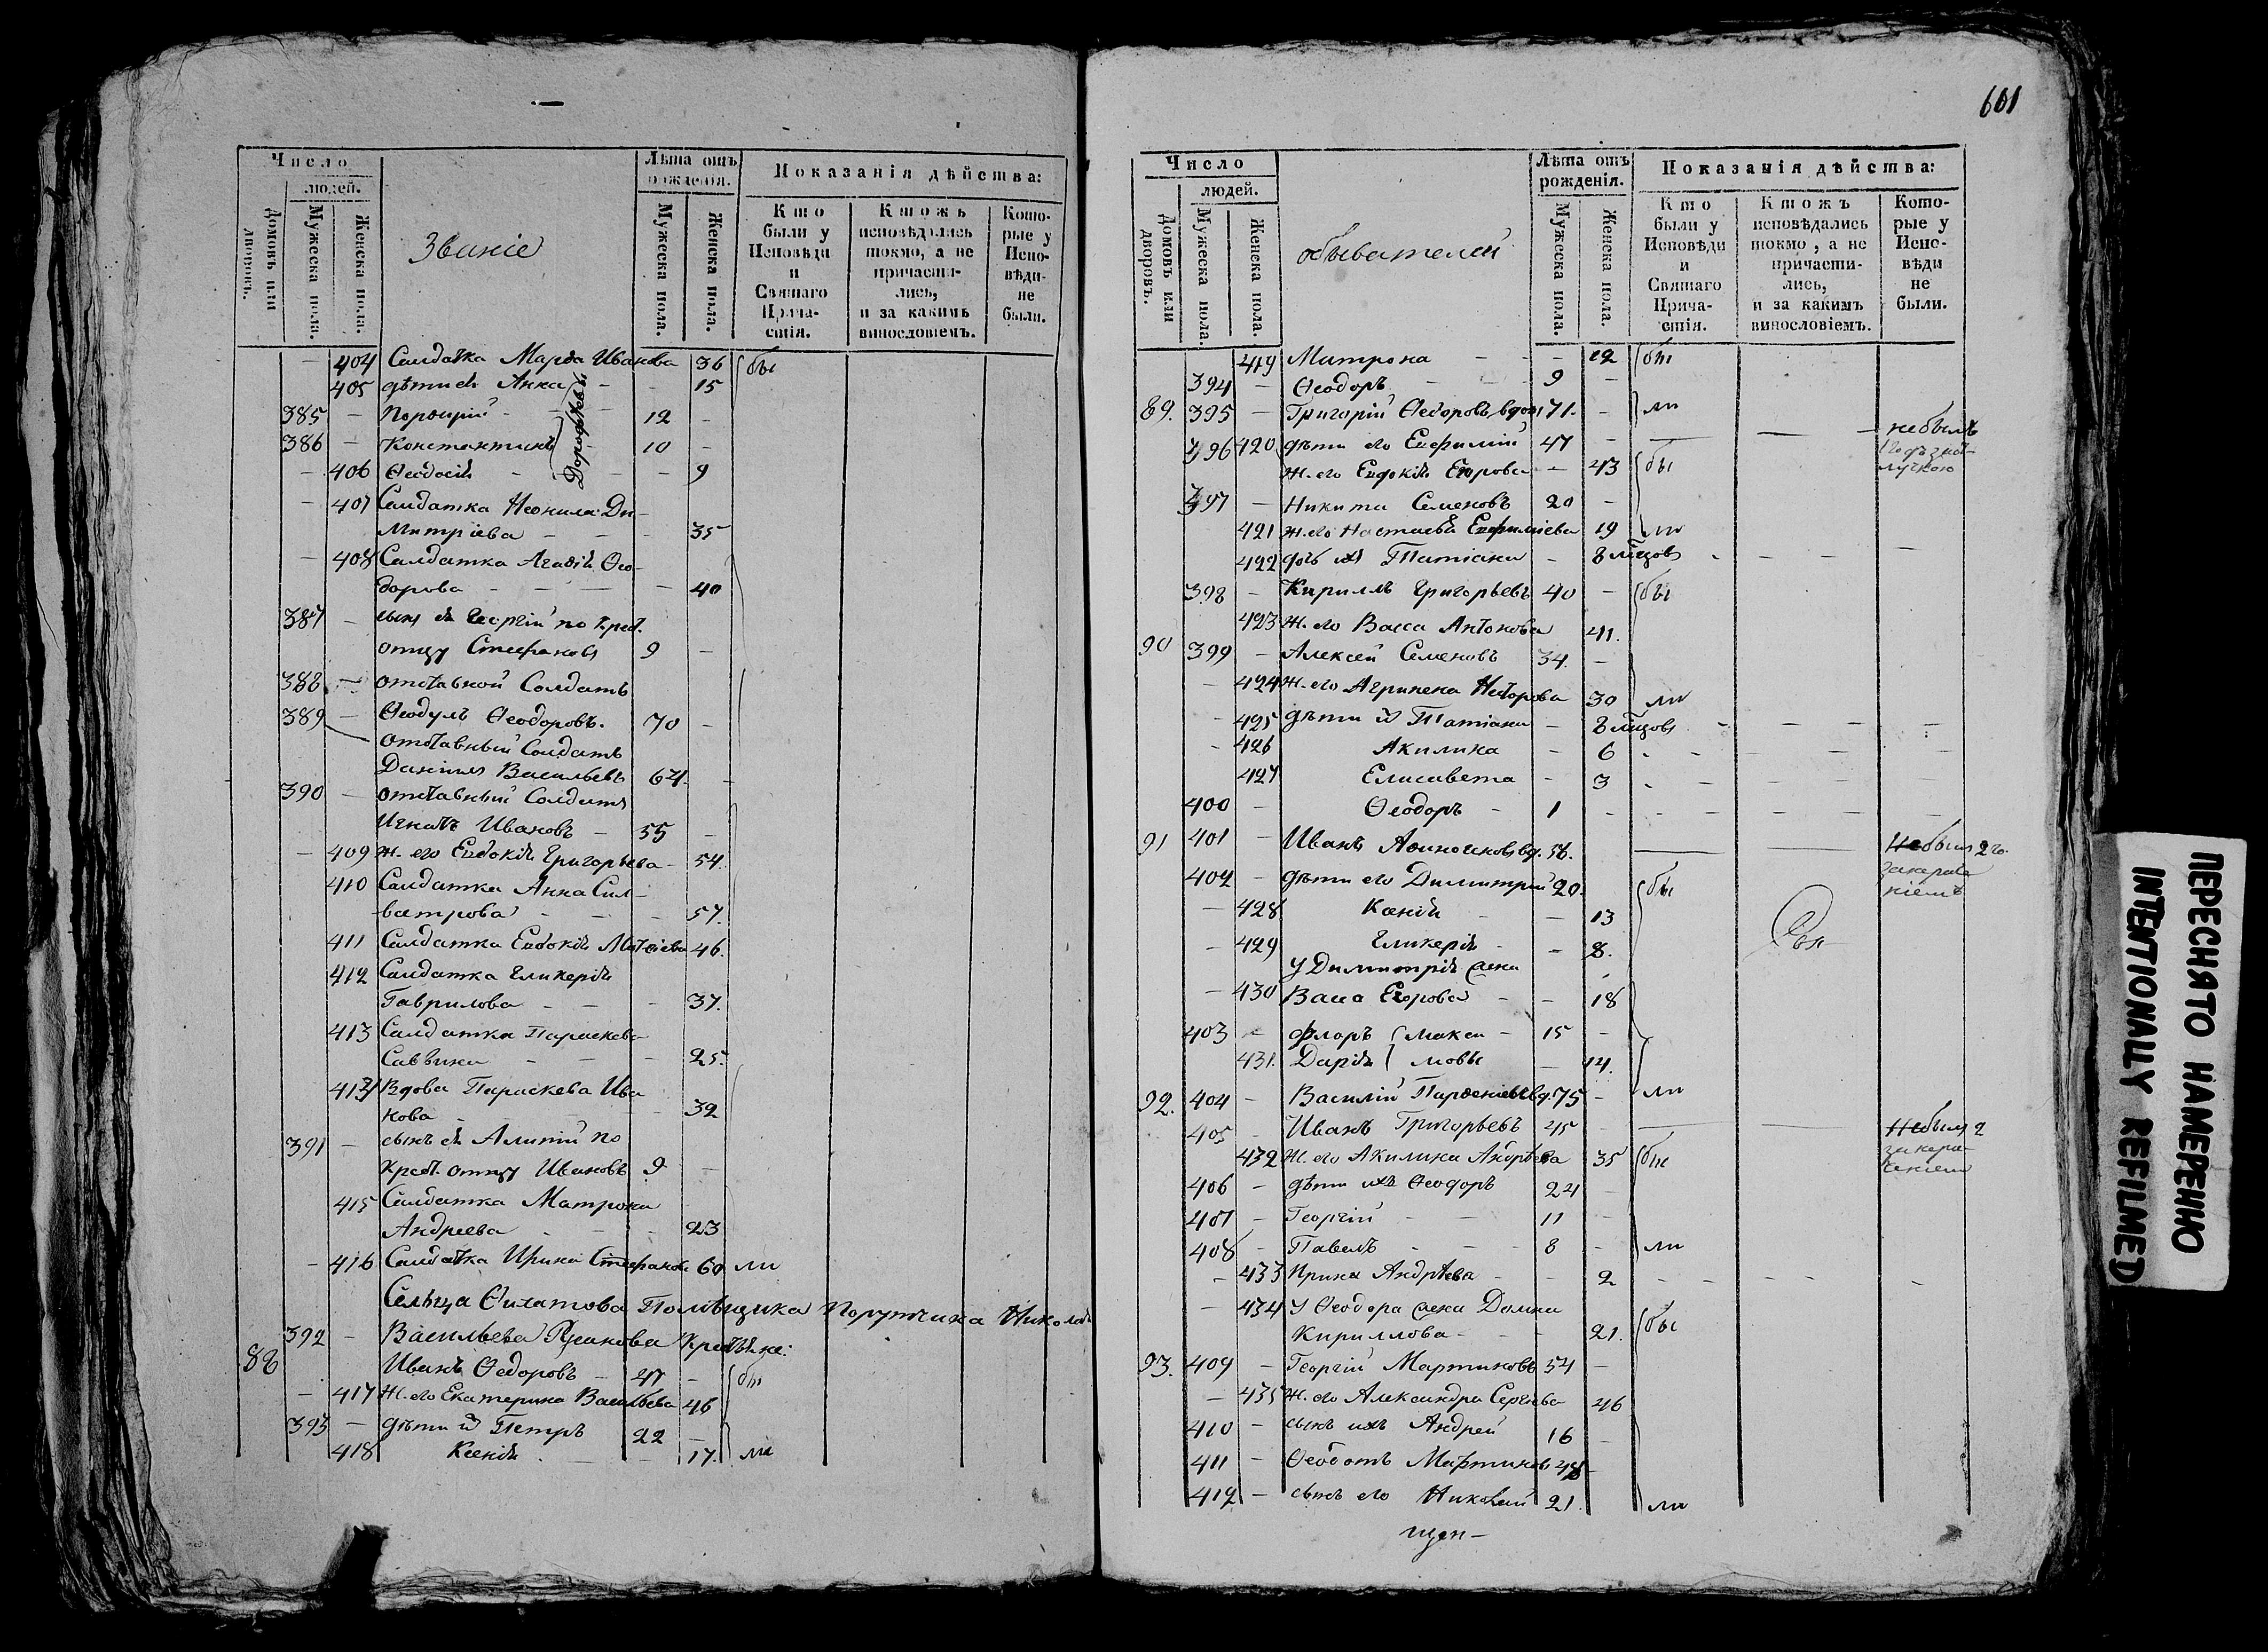 601
Число
людей.
Домовъ или дворовъ.
Мужеска пола.
Женска пола.
Званіе
Лѣта отъ рожденія.
Мужеска пола.
Женска пола.
Показанія дѣйства:
Кто были у Исповѣди и Святаго Прича-стія.
Ктожъ исповѣдались токмо, а не причасти-лись, и за какимъ винословіемъ.
Кото-рые у Испо-вѣди не были.
— 404 Салдатка Марѳа Иванова 36 бы
405 дѣти ея Анна — - 15
Дорофѣевы
385 — Порфирій - 12 -
386 — Константинъ 10 -
- 406 Ѳеодосія - - - 9
- 407 Салдатка Неонила Ди-
митріева - - - 35
- 408 Салдатка Агаѳія Ѳео-
дорова - - - 40
387 — сынъ ея Георгій по крест.
отцу Стефановъ 9 -
388 — отставной Солдатъ
389 — Ѳеодулъ Ѳеодоровъ. 70 -
отставный Солдатъ
Даніилъ Васильевъ 64. -
390 — отставный Солдатъ
Игнатъ Ивановъ - 55 -
- 409 ж. его Евдокія Григорьева - 54.
410 Салдатка Анна Сил-
вестрова - - - 57.
411 Салдатка Евдокія Матѳіева 46.
412 Салдатка Гликерія
Гаврилова - - - 37.
413 Салдатка Параскева
Саввина - - - 25.
414 Вдова Параскева Ива
нова - - - 32
391 — сынъ ея Алипій по
крест. отцу Ивановъ 9 -
415 Салдатка Матрона
Андреева - - - 23
- 416 Салдатка Ирина Стефанова 60 ли
Сельца Филатова Помѣщика Порутчика Николая
392 — Васильева Крестьяне:
88 Иванъ Ѳедоровъ - 47 - бы
- 417 ж. его Екатерина Васильева 46
393 — дѣти ихъ Петръ 22 -
418 Ксенія - - - 17. ли
Число
людей.
Домовъ или дворовъ.
Мужеска пола
Женска пола.
обывателей
Лѣта отъ рожденія.
Мужеска пола.
Женска пола.
Показанія дѣйства:
Кто были у Исповѣди и Святаго Прича-стія.
Ктожъ исповѣдались токмо, а не причасти-лись, и за какимъ винословіемъ.
Кото-рые у Испо-вѣди не были.
419 Матрона - - - 12 бы
394 — Ѳеодоръ - - 9 -
89. 395 — Григорій Ѳедоровъ вдов 71. - ли
396 420 дѣти его Евфимій 47 - — — не былъ
ж. его Евдокія Егорова — 43 бы
397 — Никита Семеновъ 20 -
421 ж. его Настасья Евфиміева 19 ли
422 дочь ихъ Татіана - 8 мѣсяцовъ - - - -
398 — Кириллъ Григорьевъ 40 - бы
423 ж. его Васса Антонова 41.
90 399 — Алексей Семеновъ 34. -
- 424 ж. его Агрипена Несторова 30 ли
- 425 дѣти ихъ Татіана - 8 мѣсяцовъ - - - -
- 426 Акилина - 6 - - - -
427 Елисавета - 3 - - - -
400 — Ѳеодоръ - 1 - - - -
91 401 — Иванъ вд. 56. — — Не былъ
402 — дѣти его Димитрій 20. бы
- 428 Ксенія - - 13
- 429 Гликерія - - 8.
у Димитрія жена
- 430 Васса Егорова - - 18
403 - Флоръ Макси- 15 -
431. Дарія мовы - 14.
92. 404 — Василій Парѳеніевъ вд. 75 - ли
405 Иванъ Григорьевъ 45 — — Не былъ
432 ж. его Акилина Андрѣева 35 бы
406 — дѣти ихъ Ѳеодоръ 24 -
407 — Георгій - - 11 -
408 - Павелъ - - 8 - ли
- 433 Ирина Андрѣева - - 2 - - - -
- 434 у Ѳеодора жена Домна
Кириллова - - - 21. бы
93. 409 — Георгій Мартиновъ 54 -
- 435 ж. его Александра Сергѣева 46
410 - сынъ ихъ Андрей 16 -
411 - Ѳеодотъ Мартиновъ 48 -
412 - сынъ его Николай 21. ли
щен-
ПЕРЕСНЯТО НАМЕРЕННО
INTENTIONALLY REFILMED